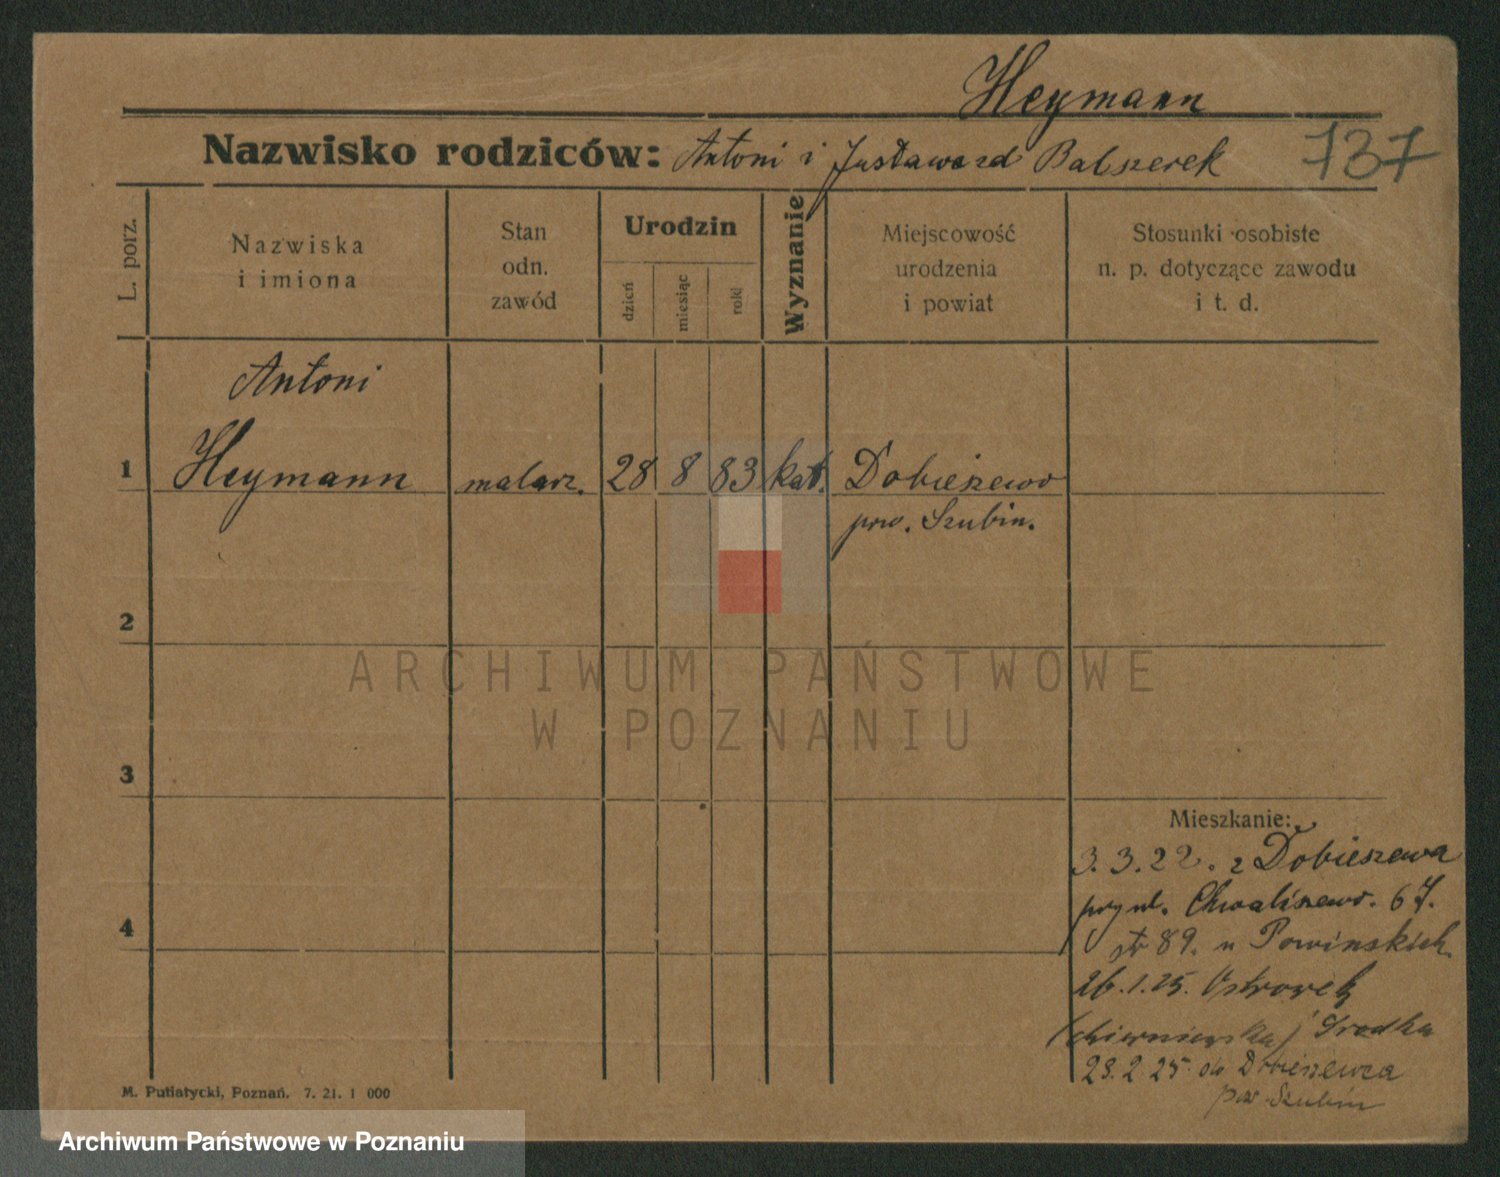 Heymann
Nazwisko rodziców: Antoni i Justawa zd Balszerek
737
L. porz.
Nazwiska
i imiona
Stan
odn.
zawód
Urodzin
dzień
miesiąc
rok
Wyznanie
Miejscowość
urodzenia
i powiat
Stosunki osobiste
n. p. dotyczące zawodu
i t. d.
Antoni
1 Heymann malarz. 28 8 83 kat. Dobieszewo
pow. Szubin.
2
3
4
Mieszkanie:
3.3.22. z Dobieszewa
przyul. Chwaliszewo. 67.
89. u Powinskich.
26.1.25. Ostrówek
Środka
23.2.25. do Dobieszewa
pow. Szubin
M. Putiatycki, Poznań. 7. 21. 1 000
ARCHIWUM PAŃSTWOWE
W POZNANIU
Archiwum Państwowe w Poznaniu